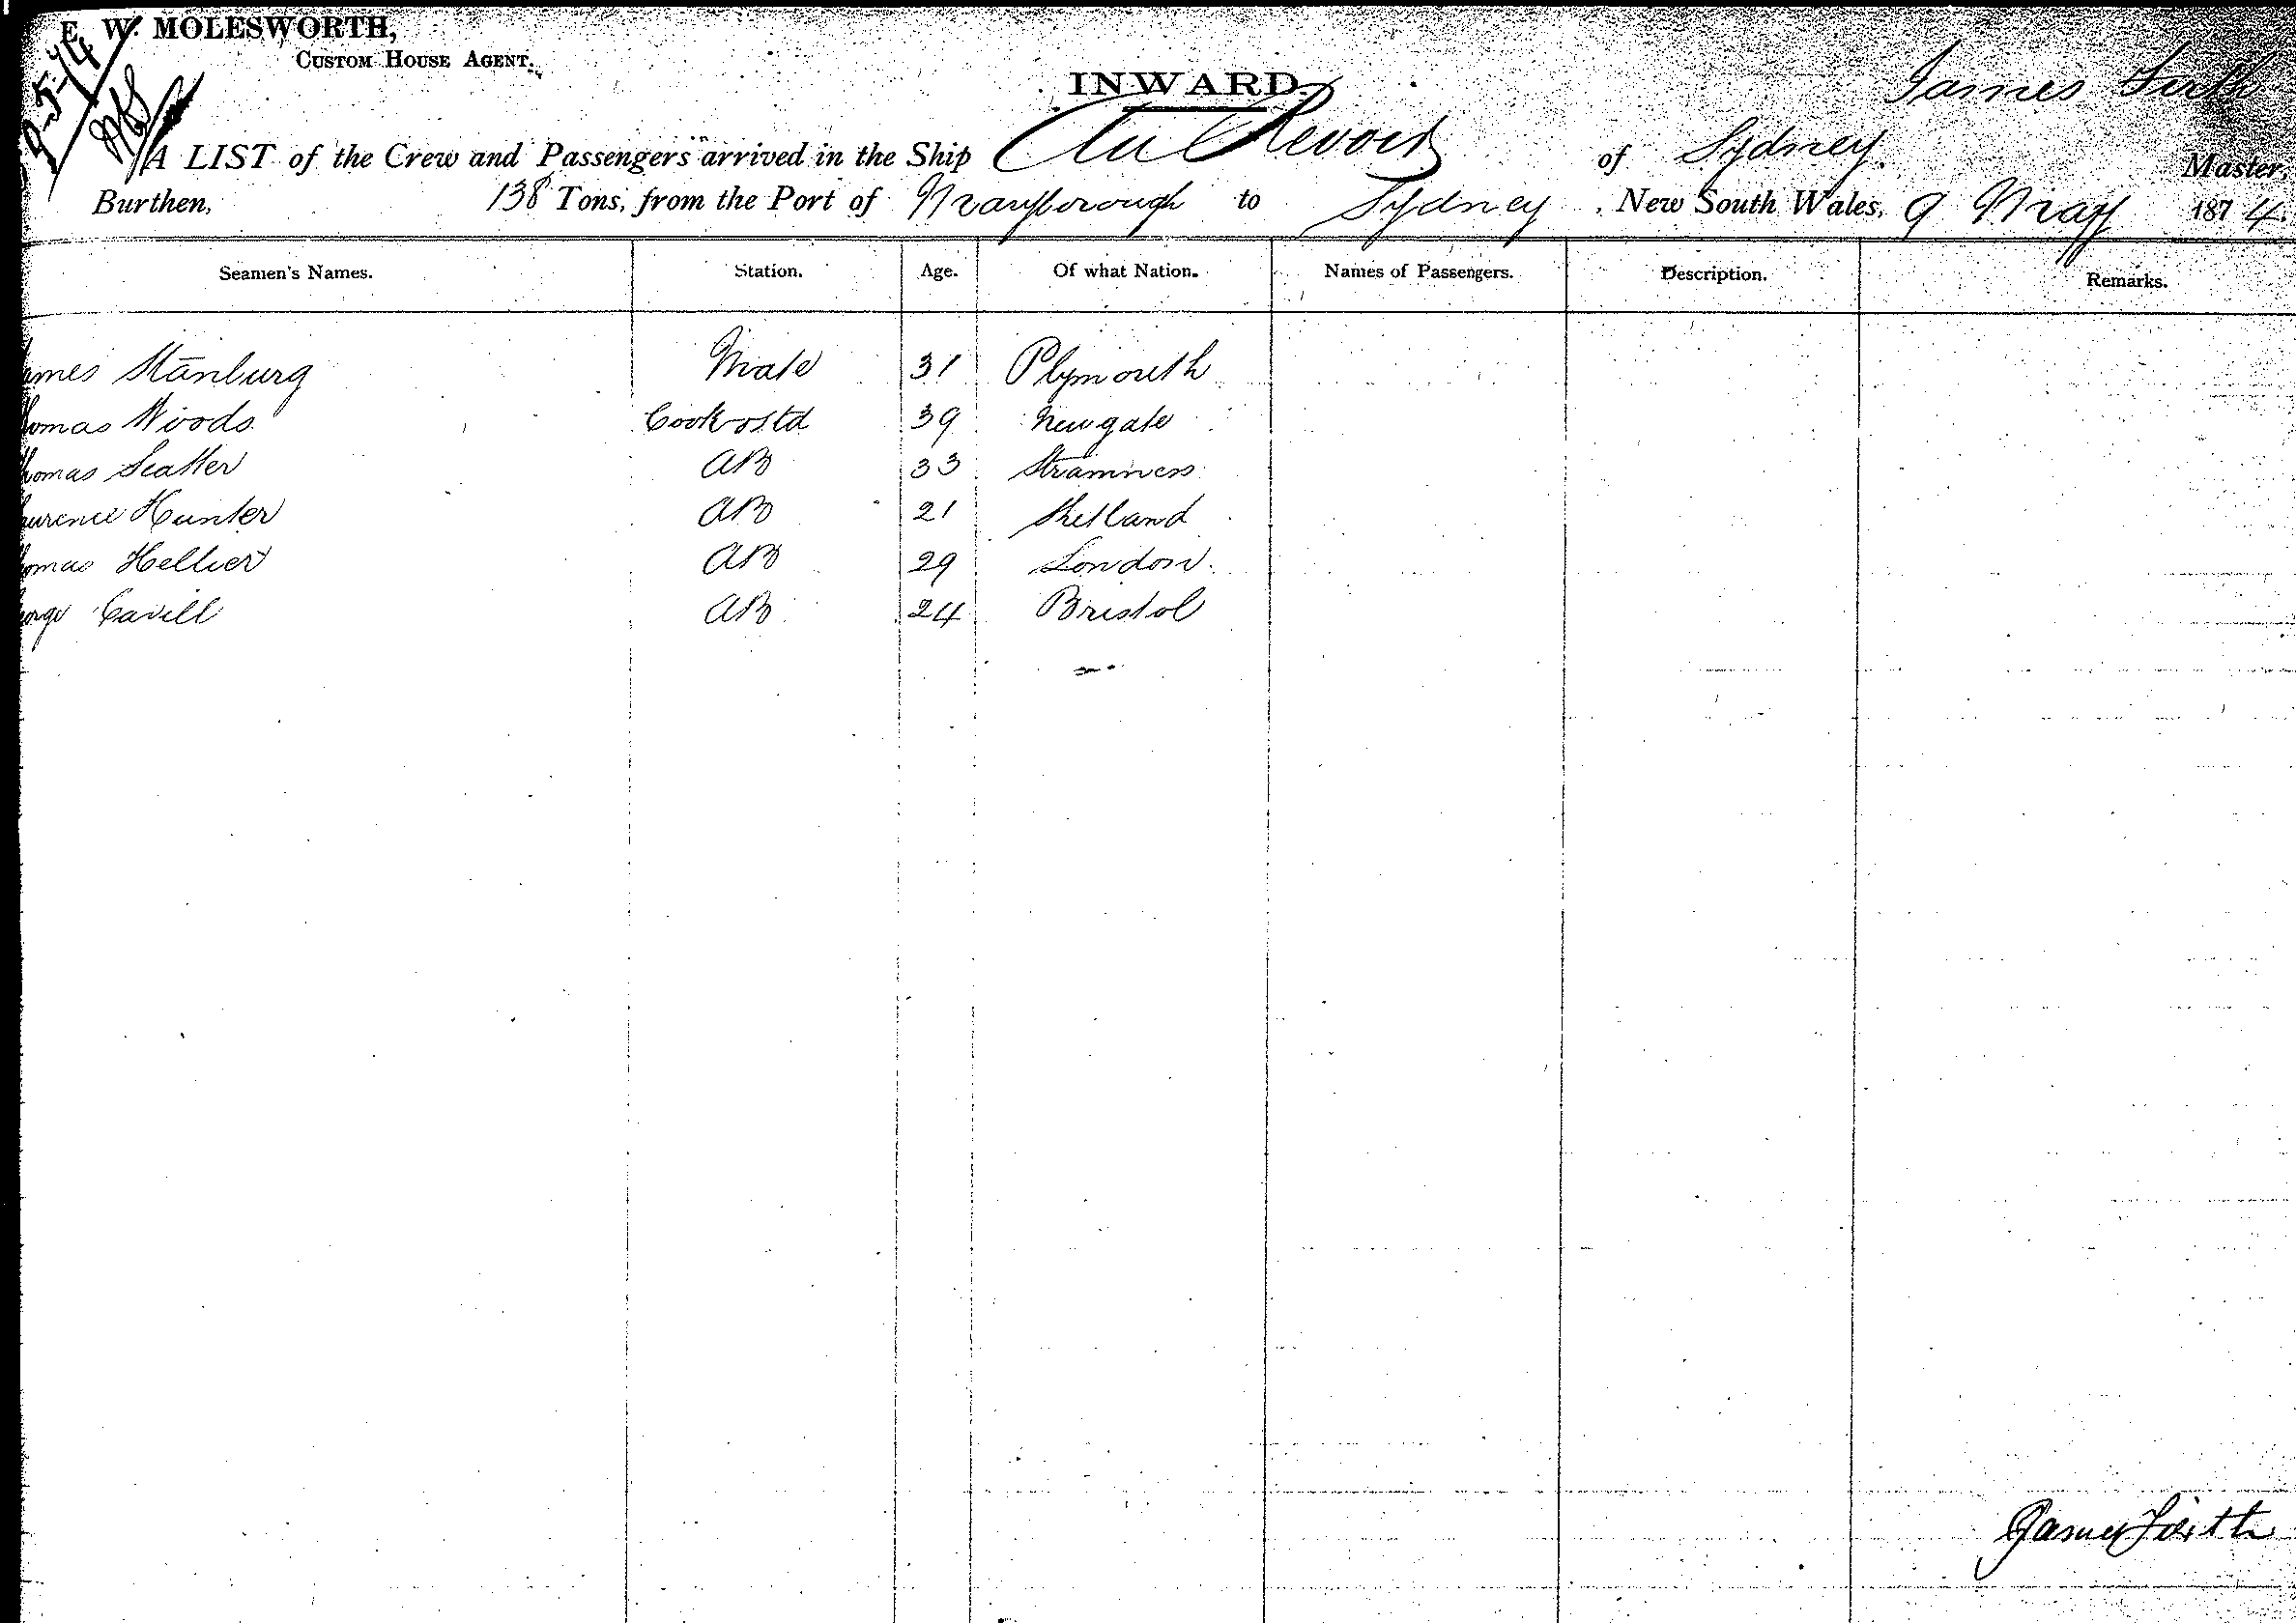 E. W. MOLESWORTH,
CUSTOM HOUSE AGENT.
9-5-74
INWARD.
James Firth
A LIST of the Crew and Passengers arrived in the Ship Au Revoir of Sydney. Master,
Burthen, 138 Tons, from the Port of Maryborough to Sydney, New South Wales, 9 May 1874.
Seamen's Names. Station. Age. Of what Nation. Names of Passengers. Description. Remarks.
ames Stanburg Mate 31 Plymouth
homas Woods Cook & Std 39 Newgate
homas Scatter AB 33 Stramness
aurence Hunter AB 21 Shetland
homas Hellier AB 29 London.
eorge Cavill AB 24 Bristol
James Firth